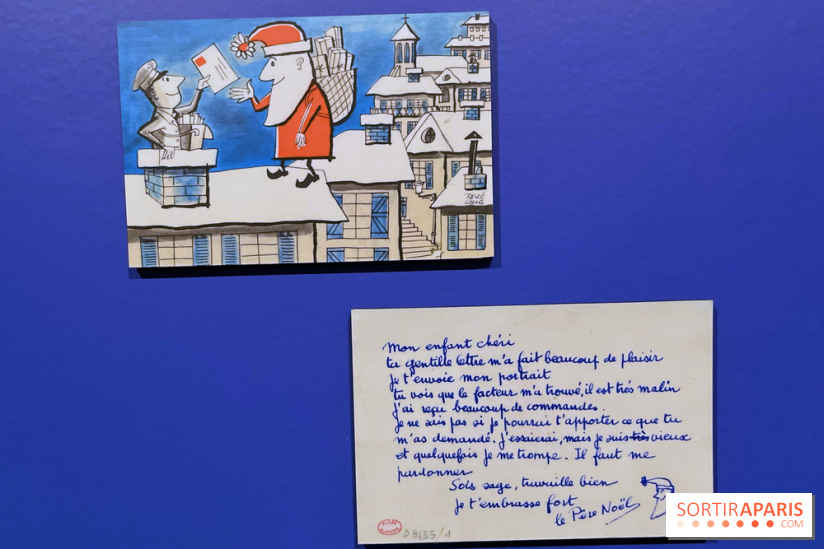 RENÉ
CHAG
Mon enfant chéri
ta gentille lettre m'a fait beaucoup de plaisir
Je t'envoie mon portrait
tu vois que le facteur m'a trouvé, il est très malin
J'ai reçu beaucoup de commandes.
Je ne sais pas si je pourrai t'apporter ce que tu
m'as demandé. J'essaierai, mais je suis très vieux
et quelquefois je me trompe. Il faut me
pardonner
Sois sage, travaille bien
Je t'embrasse fort
le Père Noël
SORTIRAPARIS
.COM